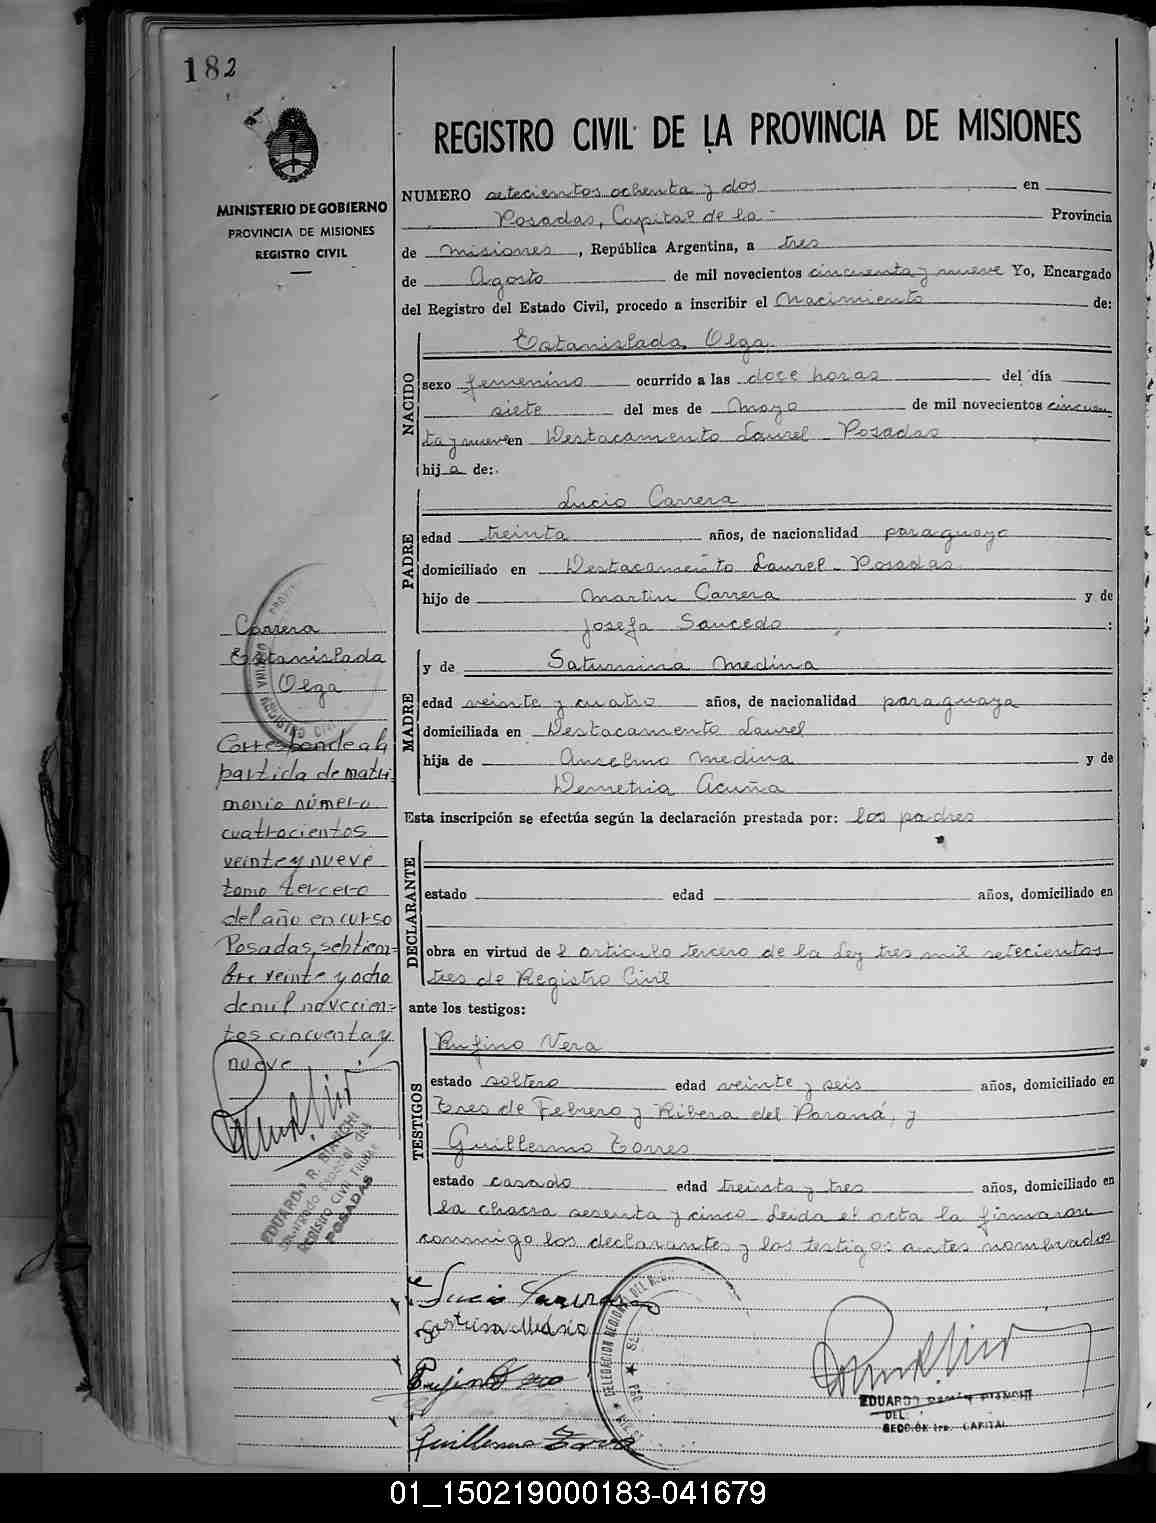 182
MINISTERIO DE GOBIERNO
PROVINCIA DE MISIONES
REGISTRO CIVIL
REGISTRO CIVIL DE LA PROVINCIA DE MISIONES
NUMERO setecientos ochenta y dos en
Posadas, Capital de la Provincia
de Misiones, República Argentina, a tres
de Agosto de mil novecientos cincuenta y nueve Yo, Encargado
del Registro del Estado Civil, procedo a inscribir el Nacimiento de:
NACIDO
Estanislada Olga
sexo femenino ocurrido a las doce horas del día
siete del mes de Mayo de mil novecientos cincuen
ta y nueve en Destacamento Laurel Posadas
hija de:
PADRE
Lucio Carrera
edad treinta años, de nacionalidad paraguaya
domiciliado en Destacamento Laurel Posadas
hijo de Martin Carrera y de
Josefa Saucedo :
MADRE
y de Saturnina Medina
edad veinte y cuatro años, de nacionalidad paraguaya
domiciliada en Destacamento Laurel
hija de Anselmo Medina y de
Demetria Acuña
Esta inscripción se efectúa según la declaración prestada por: los padres
DECLARANTE
estado edad años, domiciliado en
obra en virtud del articulo tercero de la Ley tres mil setecientos
tres de Registro Civil
ante los testigos:
TESTIGOS
Rufino Vera
estado soltero edad veinte y seis años, domiciliado en
Tres de Febrero y Ribera del Paraná, y
Guillermo Torres
estado casado edad treinta y tres años, domiciliado en
la chacra sesenta y cinco Leida el acta la firmaron
conmigo los declarantes y los testigos antes nombrados
Carrera
Estanislada
Olga
Corresponde a la
partida de matri
monio número
cuatrocientos
veinte y nueve
tomo tercero
del año en curso
Posadas, septiem-
bre veinte y ocho
de mil novecien-
tos cincuenta y
nueve
EDUARDO R. BIANCHI
Registro Civil Titular
POSADAS
Lucio Carrera
Guillermo Torres
DELEGACION REGIONAL DEL
EDUARDO RAMÓN BIANCHI
DEL.
SECCIÓN 1ra. CAPITAL
01_150219000183-041679